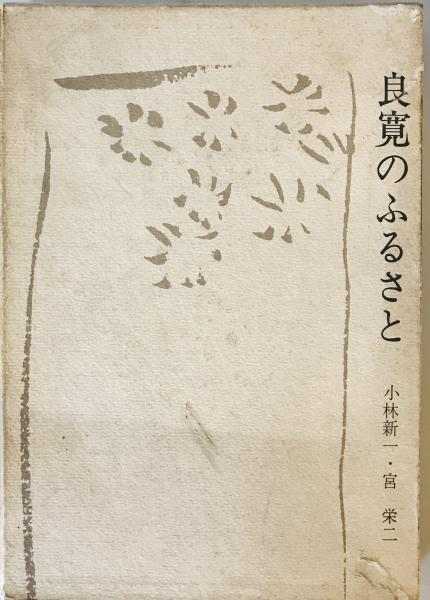 良寛のふるさと
小林新一・宮 栄二